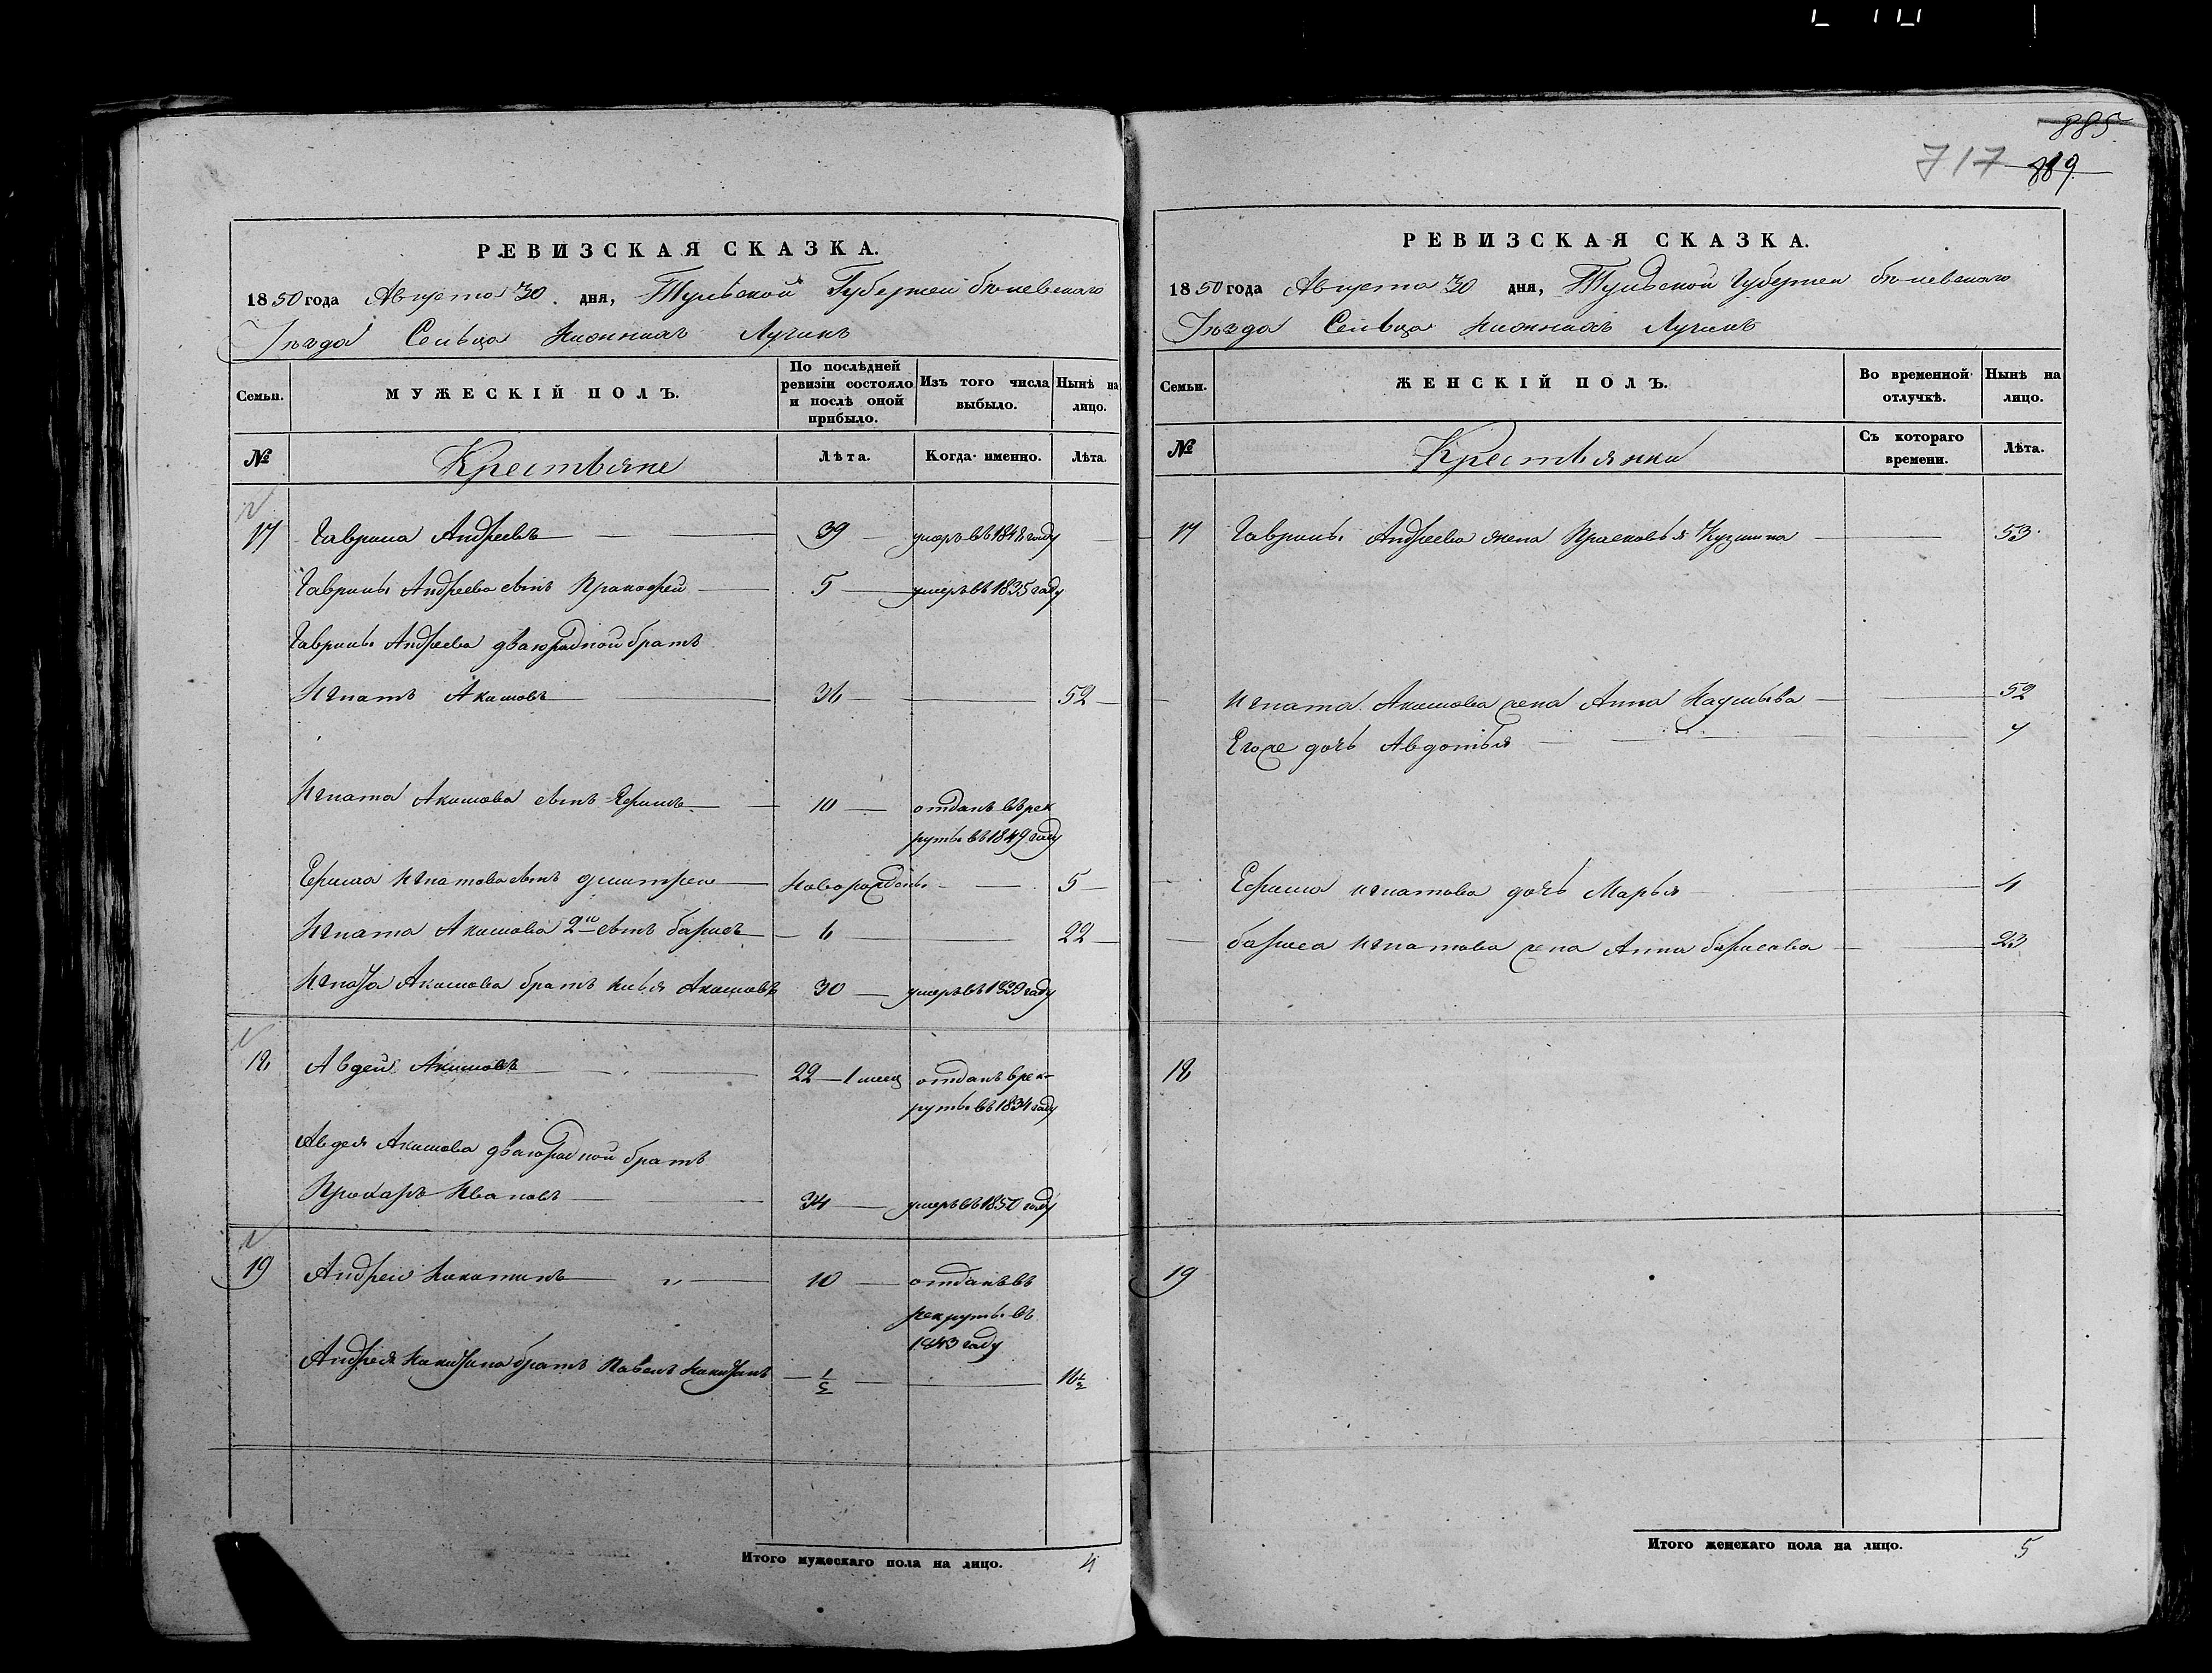 885
717 889
РЕВИЗСКАЯ СКАЗКА.
1850 года Августа 30 дня, Тульской Губернеи белевскаго
Уезда Сельца Нижнихъ Лучикъ
Семьи.
МУЖЕСКІЙ ПОЛЪ.
По послѣдней ревизіи состояло и послѣ оной прибыло.
Изъ того числа выбыло.
Нынѣ на лицо.
№
Крестьяне
Лѣта.
Когда именно.
Лѣта.
17 Гаврила Андреевъ 39 умеръ въ 1848 году
Гаврилы Андреева сынъ Пракофей 5 умеръ въ 1835 году
Гаврилы Андреева дваюродной братъ
Игнатъ Акимовъ 36 52
Игната Акимова сынъ Ефимъ 10 отданъ въ рек
руты въ 1849 году
Ефима Игнатова сынъ дмитреи новорожден. 5
Игната Акимова 2й сынъ барисъ 6 22
Игната Акимова братъ илья Акимовъ 30 умеръ въ 1839 году
18 Авдей Акимовъ 22 1 месец отданъ в рек-
руты въ 1834 году
Авдея Акимова дваюродной братъ
Прохаръ Ивановъ 34 умеръ въ 1850 году
19 Андреи Никитинъ 10 отданъ въ
рекруты въ
1843 году
Андрея Никитина братъ Павелъ Никитинъ 1/2 16 1/2
Итого мужескаго пола на лицо. 4
РЕВИЗСКАЯ СКАЗКА.
1850 года Августа 30 дня, Тульской Губернеи белевскаго
Уезда Сельца Нижнихъ Лучикъ
Семьи.
ЖЕНСКІЙ ПОЛЪ.
Во временной отлучкѣ.
Нынѣ на лицо.
№
Крестьянки
Съ котораго времени.
Лѣта.
17 Гаврилы Андреева жена Прасковья Кузмина 53
Игната Акимова жена Анна Наумьва 52
Егоже дочь Авдотья 7
Ефима игнатова дочь Марья 4
бариса Игнатова жена Анна барисава 23
18
19
Итого женскаго пола на лицо. 5